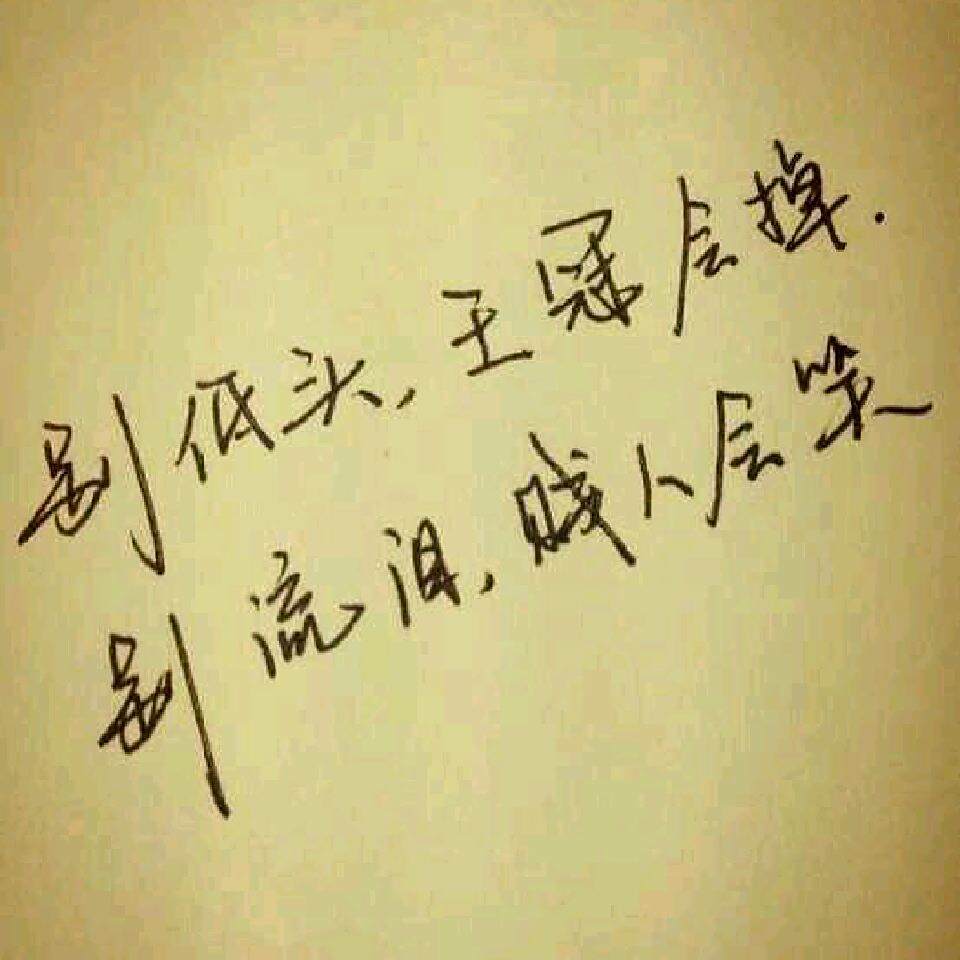 别低头,王冠会掉.
别流泪,贱人会笑